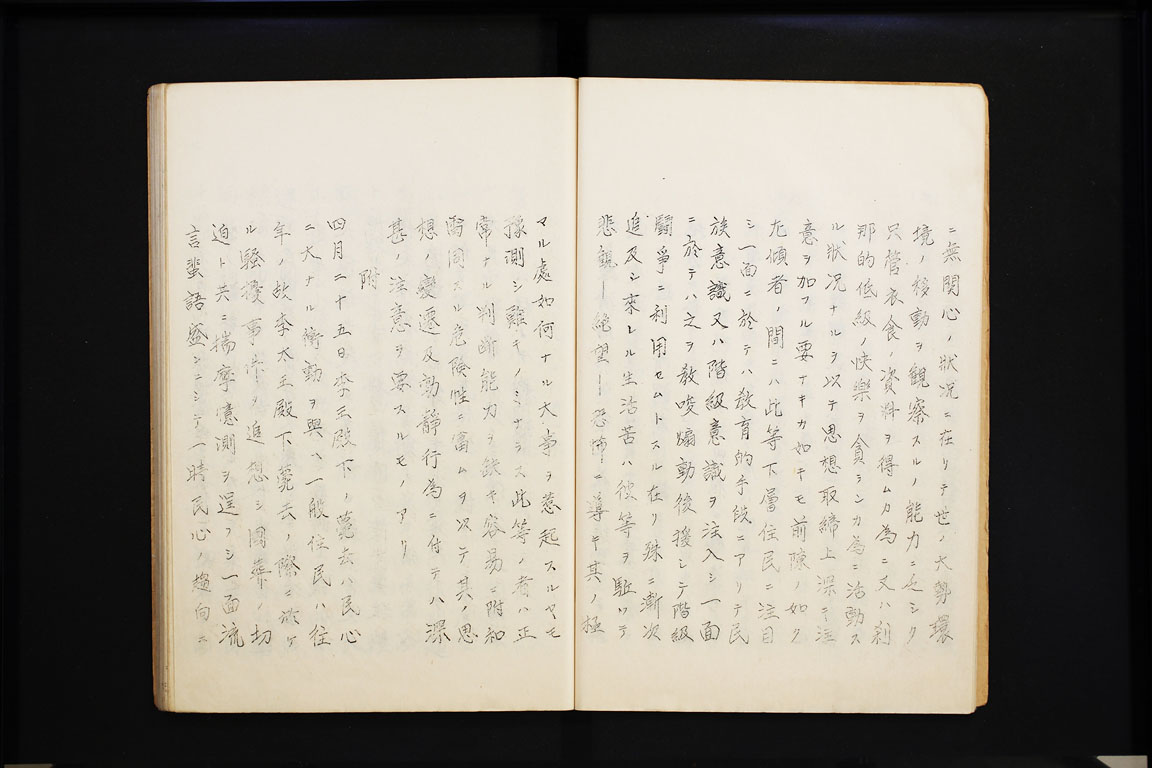 ニ無関心ノ状況ニ在リテ世ノ大勢環
境ノ移動ヲ観察スルノ能力ニ乏シク
只管衣食ノ資料ヲ得ムカ為ニ又ハ刹
那的低級ノ快樂ヲ貪ランカ為ニ活動ス
ル状況ナルヲ以テ思想取締上深ク注
意ヲ加フル要ナキカ如キモ前陳ノ如ク
左傾者ノ間ニハ此等下層住民ニ注目
シ一面ニ於テハ教育的手段ニアリテ民
族意識又ハ階級意識ヲ注入シ一面
ニ於テハ之ヲ教唆煽動後援シテ階級
闘爭ニ利用セムトスル在リ殊ニ漸次
追及シ來レル生活苦ハ彼等ヲ駈ツテ
悲観―絶望―恐怖ニ導キ其ノ極
マル處如何ナル大事ヲ惹起スルヤモ
豫測シ難キノミナラス此等ノ者ハ正
常ナル判断能力ヲ缺キ容易ニ附和
雷同スル危険性ニ富ムヲ以テ其ノ思
想ノ變遷及動静行為ニ付テハ深
甚ノ注意ヲ要スルモノアリ
附
四月二十五日李王殿下ノ薨去ハ民心
ニ大ナル衝動ヲ與ヘ一般住民ハ往
年ノ故李太王殿下薨去ノ際ニ於ケ
ル騒擾事件ヲ追想シ國葬ノ切
迫ト共ニ揣摩憶測ヲ逞フシ一面流
言蜚語盛ンニシテ一時民心ノ趨向ニ